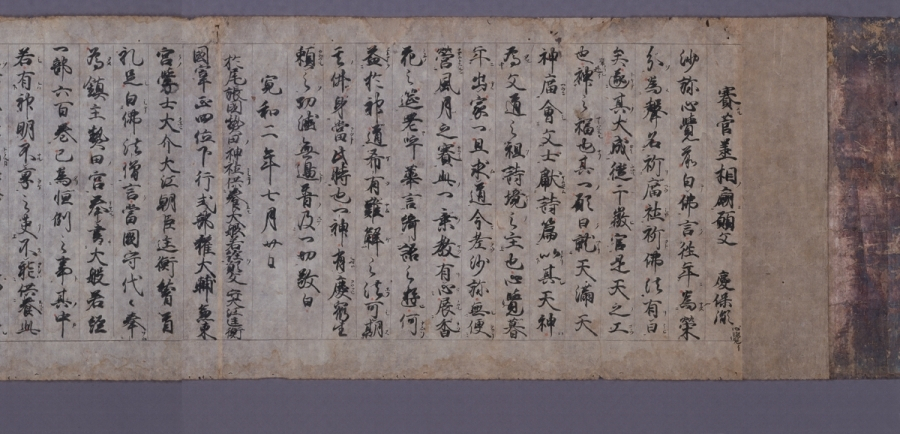 賽菅丞相廟願文 慶保胤
沙弥心覺敬白佛言往年為榮
分為聲名祈廟社祈佛法有日
矣遂其大成徃于微官是天之工
也神之福也其一願曰就天満天
神廟會文士獻詩篇以其天神
為文道之祖詩境之主也心覺暮
年出家一旦求道今老沙弥無便
營風月之賽此一乗教有心展香
花之筵老呼華言綺語之遊何
益於神道希有難解之法可期
其佛身當此時也一神有慶衆生
頼之切滅無邉普及一切敬白
寛和二年七月廿日
於尾張國熱田神社供養大般若經願文 江匡衡
國宰正四位下行式部權大輔兼東
宮學士大介大江朝臣匡衡稽首
礼足白佛法僧言當國守代〻奉
為鎮主熱田宮奉書大般若經
一部六百巻已為恒例之事其中
若有神明不享之吏不能供養此